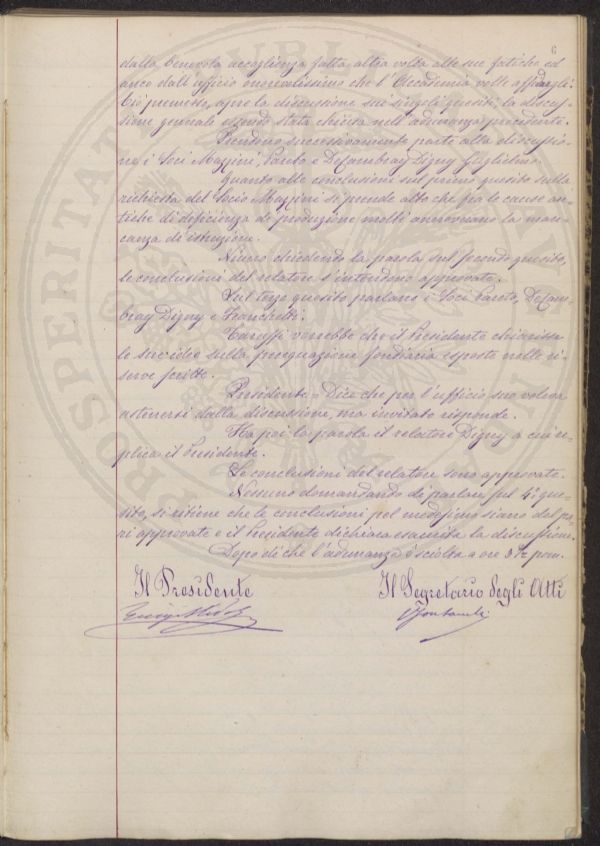 6
dalla benevola accoglienza fatta altra volta alle sue fatiche ed
anco dall'ufficio onorevolissimo che l'Accademia volle affidargli.
Ciò premesso, apre la discussione sui singoli quesiti, la discus-
sione generale essendo stata chiusa nell'adunanza precedente.
Prendono successivamente parte alla discussio-
ne i Soci Mazzini, Pareto e Decambray Digny Guglielmo.
Quanto alle conclusioni sul primo quesito sulla
richiesta del Socio Mazzini si prende atto che fra le cause an-
tiche di deficienza di produzione molti annoverano la man-
canza di istruzione.
Niuno chiedendo la parola sul secondo quesito,
le conclusioni del relatore s'intendono approvate.
Sul terzo quesito parlano i Soci Pareto, Decam-
bray Digny e Franchetti.
Caruffi vorrebbe che il Presidente chiarisse
le sue idee sulla perequazione fondiaria esposte nelle ri-
serve scritte.
Presidente = Dice che per l'ufficio suo voleva
astenersi dalla discussione, ma invitato risponde.
Ha poi la parola il relatore Digny a cui re-
plica il Presidente.
Le conclusioni del relatore sono approvate.
Nessuno domandando di parlare sul 4º que-
sito, si ritiene che le conclusioni pel medesimo siano del pa-
ri approvate e il Presidente dichiara esaurita la discussione.
Dopo di che l'adunanza è sciolta a ore 3 ½ pom.
Il Presidente Il Segretario degli Atti
Luigi